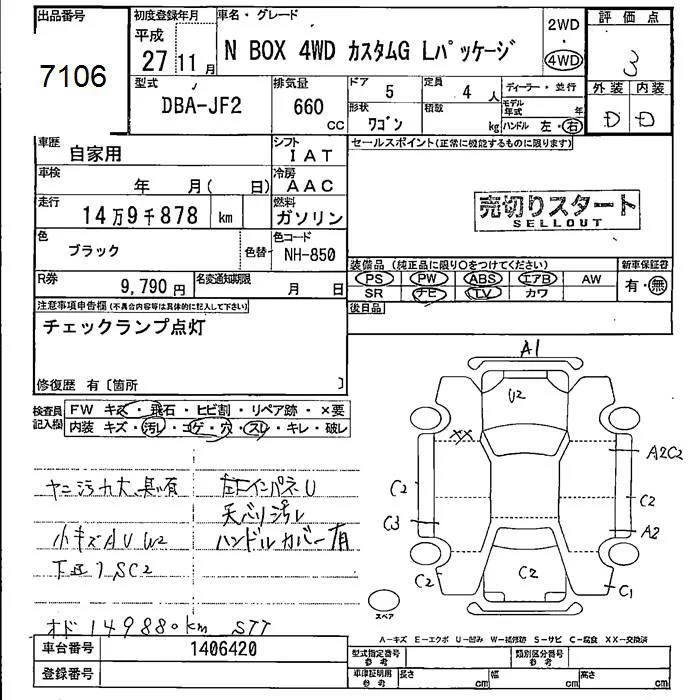 出品番号
7106
初度登録年月
平成
27年11月
車名・グレード
N BOX 4WD カスタムG Lパッケージ
2WD
・
4WD
評価点
3
外装 内装
D D
型式
DBA-JF2
排気量
660
CC
ドア
5
定員
4人
形状
ワゴン
積載
kg
ディーラー・並行
モデル年式 年
ハンドル 左・右
車歴
自家用
シフト
IAT
車検
年 月( 日)
冷房
AAC
走行
14万9千878 km
燃料
ガソリン
色
ブラック
色替
色コード
NH-850
R券
9,790円
名変通知期限
月 日
セールスポイント(正常に機能するものに限ります)
売切りスタート
SELLOUT
装備品(純正品に限り○をつけてください)
新車保証書
PS PW ABS エアB AW
SR ナビ TV カワ
有・無
後日品
注意事項申告欄(不具合内容等は具体的に記入して下さい)
チェックランプ点灯
修復歴 有〔箇所 〕
検査員記入欄
FW キズ・飛石・ヒビ割・リペア跡・×要
内装 キズ・汚レ・コゲ・穴・スレ・キレ・破レ
ヤニ汚れ大 臭い有
左インパネU
天バリ汚レ
小キズAU W2
ハンドルカバー有
下回りSC2
オド 149880km STT
A1
U2
XX
A2C2
C2
C2
C3
A2
C2
C2
C1
スペア
A-キズ E-エクボ U-凹み W-補修跡 S-サビ C-腐食 XX-交換済
車台番号
1406420
登録番号
型式指定番号
参考
類別区分番号
参考
車庫証明用
参考
長さ cm
幅 cm
高さ cm